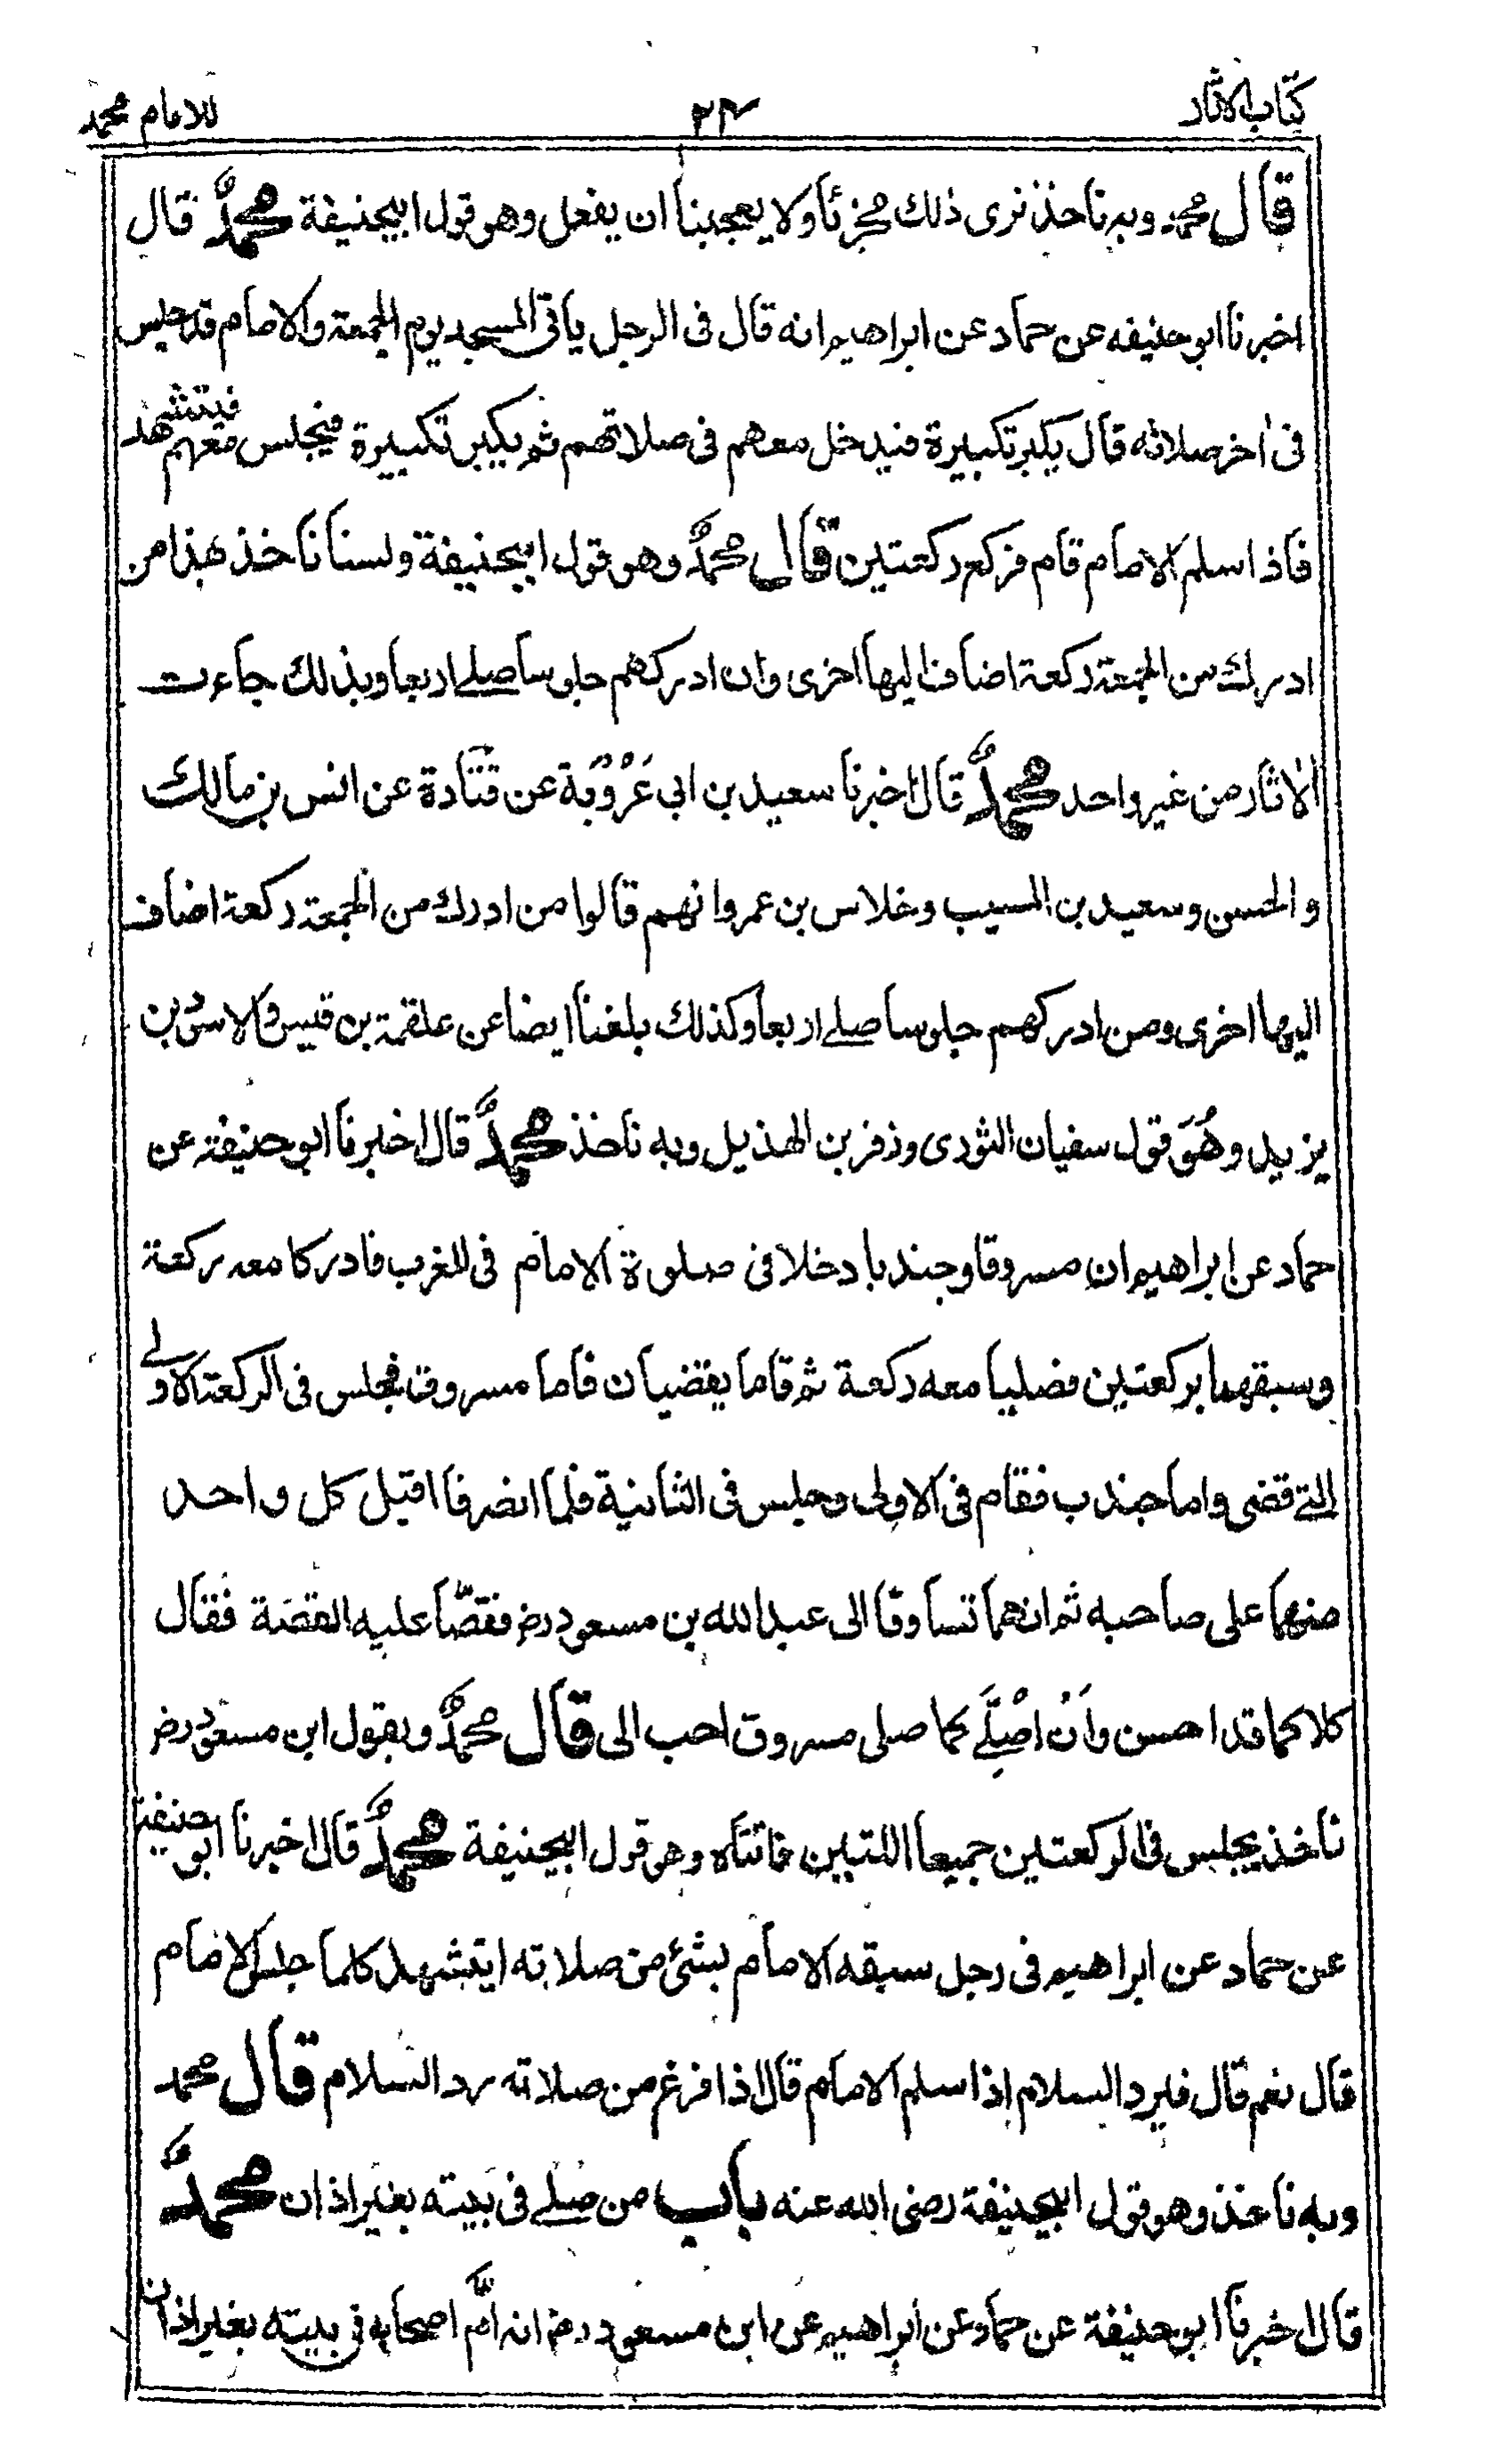 كتاب الاثار ٢٤ للامام محمد
قال محمد وبه ناخذ نرى ذلك مجزئا ولا يعجبنا ان يفعل وهو قول ابيحنيفة محمد قال
اخبرنا ابو حنيفه عن حماد عن ابراهيم انه قال فى الرجل ياتى المسجد يوم الجمعة والامام قد جلس
فى اخر صلاته قال يكبر تكبيرة فيدخل معهم فى صلاتهم ثم يكبر تكبيرة فيجلس معهم فيتشهد
فاذا سلم الامام قام فركع ركعتين قال محمد وهو قول ابيحنيفة ولسنا ناخذ بهذا من
ادرك من الجمعة ركعة اضاف اليها اخرى وان ادركهم جلوسا صلے اربعا وبذلك جاءت
الاثار من غير واحد محمد قال اخبرنا سعيد بن ابي عَرُوْبَة عن قتادة عن انس بن مالك
والحسن وسعيد بن المسيب وخلاس بن عمرو انهم قالوا من ادرك من الجمعة ركعة اضاف
اليها اخرى ومن ادركهم جلوسا صلے اربعا وكذلك بلغنا ايضا عن علقمة بن قيس والاسود بن
يزيد وهُوَ قول سفيان الثورى وزفر بن الهذيل وبه ناخذ محمد قال اخبرنا ابو حنيفة عن
حماد عن ابراهيم ان مسروقا وجندبا دخلا فى صلوة الامام فى المغرب فادركا معه ركعة
وسبقهما بركعتين فصليا معه ركعة ثم قاما يقضيان فاما مسروق فجلس فى الركعة الاولے
التے قضى واما جندب فقام فى الاولى وجلس فى الثانية فلما انصرفا اقبل كل واحد
منهما على صاحبه ثم انهما تساوقا الى عبد الله بن مسعود رضـ فقصّا عليه القصة فقال
كلاكما قد احسن وَاَنْ اصَلِّے كما صلى مسروق احب الى قال محمد وبقول ابن مسعود رضـ
ناخذ يجلس فى الركعتين جميعا اللتين فاتتاه وهو قول ابيحنيفة محمد قال اخبرنا ابو حنيفة
عن حماد عن ابراهيم فى رجل سبقه الامام بشئ من صلاته ايتشهد كلما جلس الامام
قال نعم قال فيرد السلام اذا سلم الامام قال اذا فرغ من صلاته رد السلام قال محمد
وبه ناخذ وهو قول ابيحنيفة رضى الله عنه باب من صلے فى بيته بغير اذان محمد
قال اخبرنا ابو حنيفة عن حماد عن ابراهيم عن ابن مسعود رضـ انه اَمَّ اصحابه فى بيته بغير اذان